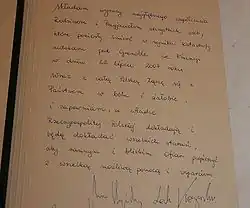 Składam wyrazy najgłębszego współczucia
Rodzinom i Przyjaciołom wszystkich osób,
które poniosły śmierć w wypadku katastrofy
autokaru pod Grenoble we Francji
w dniu 22 lipca 2007 roku
Wraz z całą Polską łączę się z
Państwem w bólu i żałobie
i zapewniam, że władze
Rzeczypospolitej Polskiej dokładają i
będą dokładać wszelkich starań,
aby rannym i bliskim ofiar pospieszyć
z wszelką możliwą pomocą i wsparciem
Lech Kaczyński